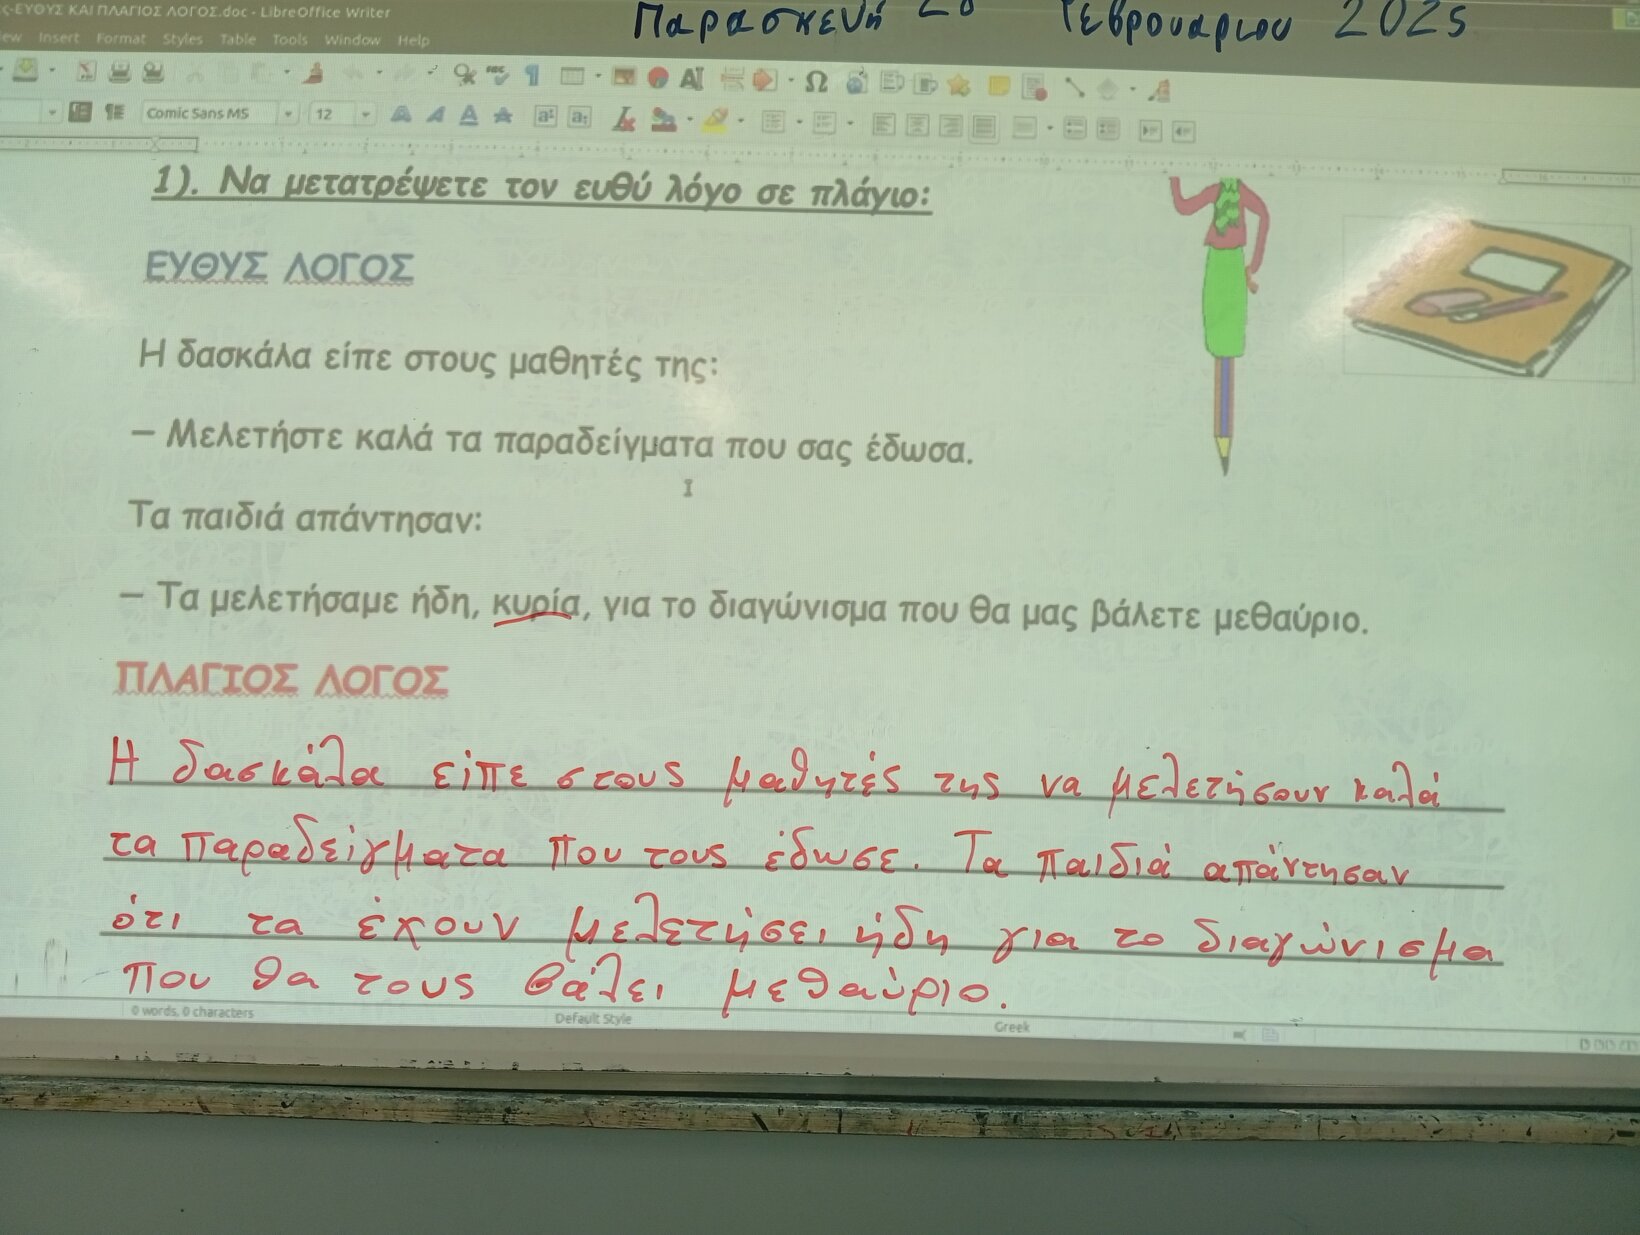 ς-ΕΥΘΥΣ ΚΑΙ ΠΛΑΓΙΟΣ ΛΟΓΟΣ.doc - LibreOffice Writer
Παρασκευή 28 Φεβρουαρίου 2025
ew Insert Format Styles Table Tools Window Help
Comic Sans MS 12
1). Να μετατρέψετε τον ευθύ λόγο σε πλάγιο:
ΕΥΘΥΣ ΛΟΓΟΣ
Η δασκάλα είπε στους μαθητές της:
– Μελετήστε καλά τα παραδείγματα που σας έδωσα.
Τα παιδιά απάντησαν:
– Τα μελετήσαμε ήδη, κυρία, για το διαγώνισμα που θα μας βάλετε μεθαύριο.
ΠΛΑΓΙΟΣ ΛΟΓΟΣ
Η δασκάλα είπε στους μαθητές της να μελετήσουν καλά
τα παραδείγματα που τους έδωσε. Τα παιδιά απάντησαν
ότι τα έχουν μελετήσει ήδη για το διαγώνισμα
που θα τους βάλει μεθαύριο.
0 words, 0 characters Default Style Greek